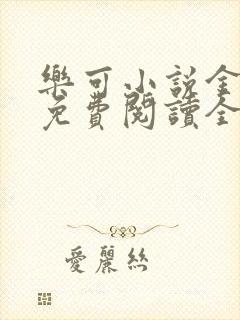 樂可小說全
免費閱讀全
愛麗絲